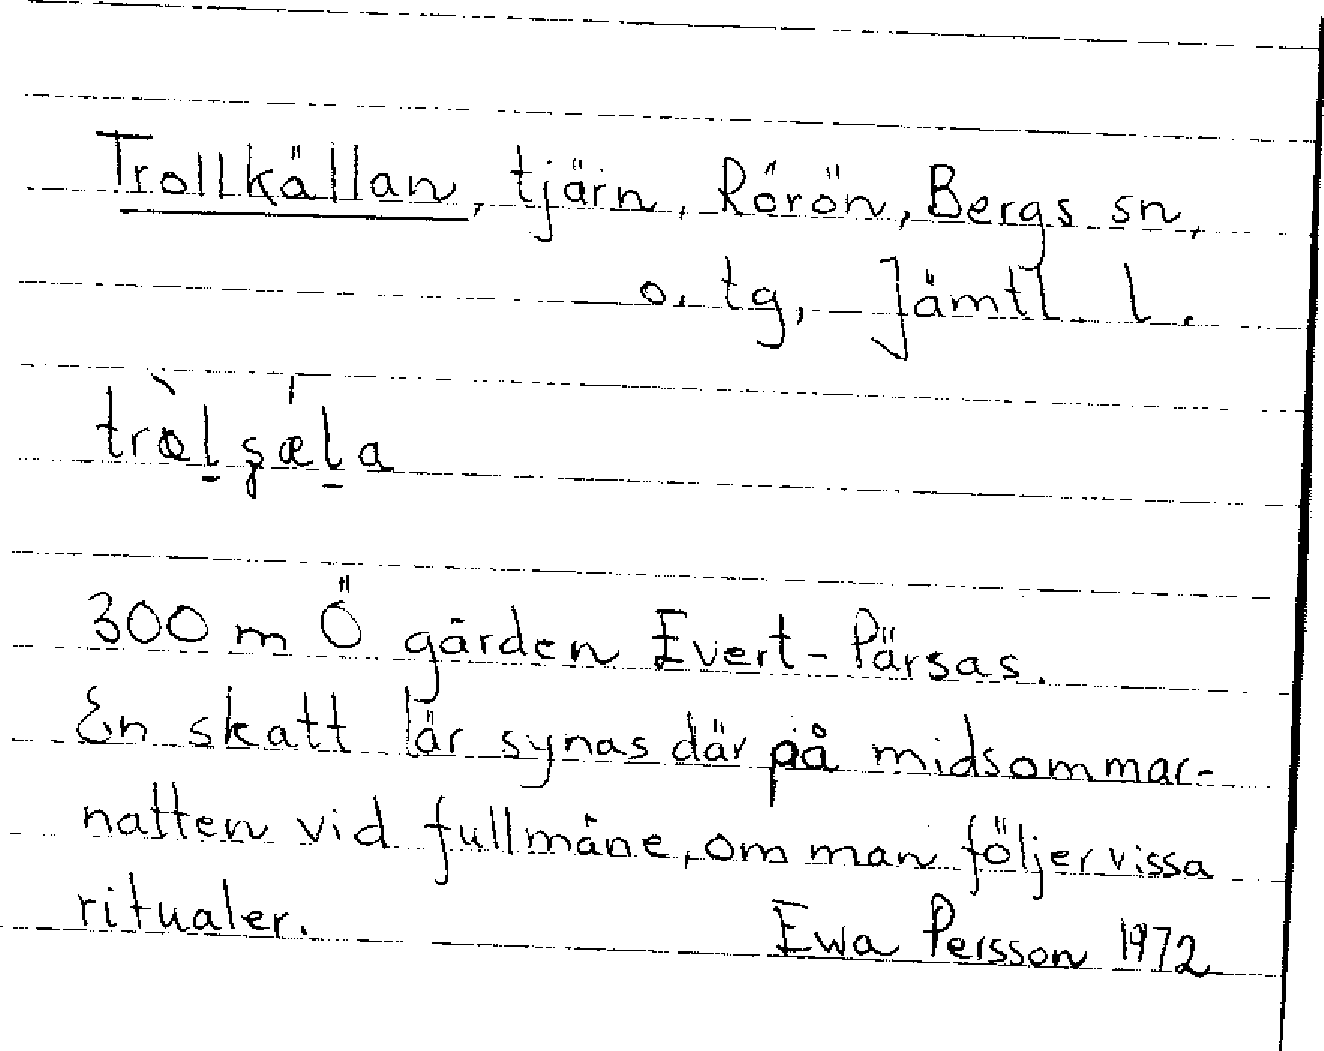 Trollkällan, tjärn, Rörön, Bergs sn,
o. tg, Jämtl. l.
300 m Ö gården Evert-Pärsas.
En skatt lär synas där på midsommar-
natten vid fullmåne, om man följer vissa
ritualer. Ewa Persson 1972